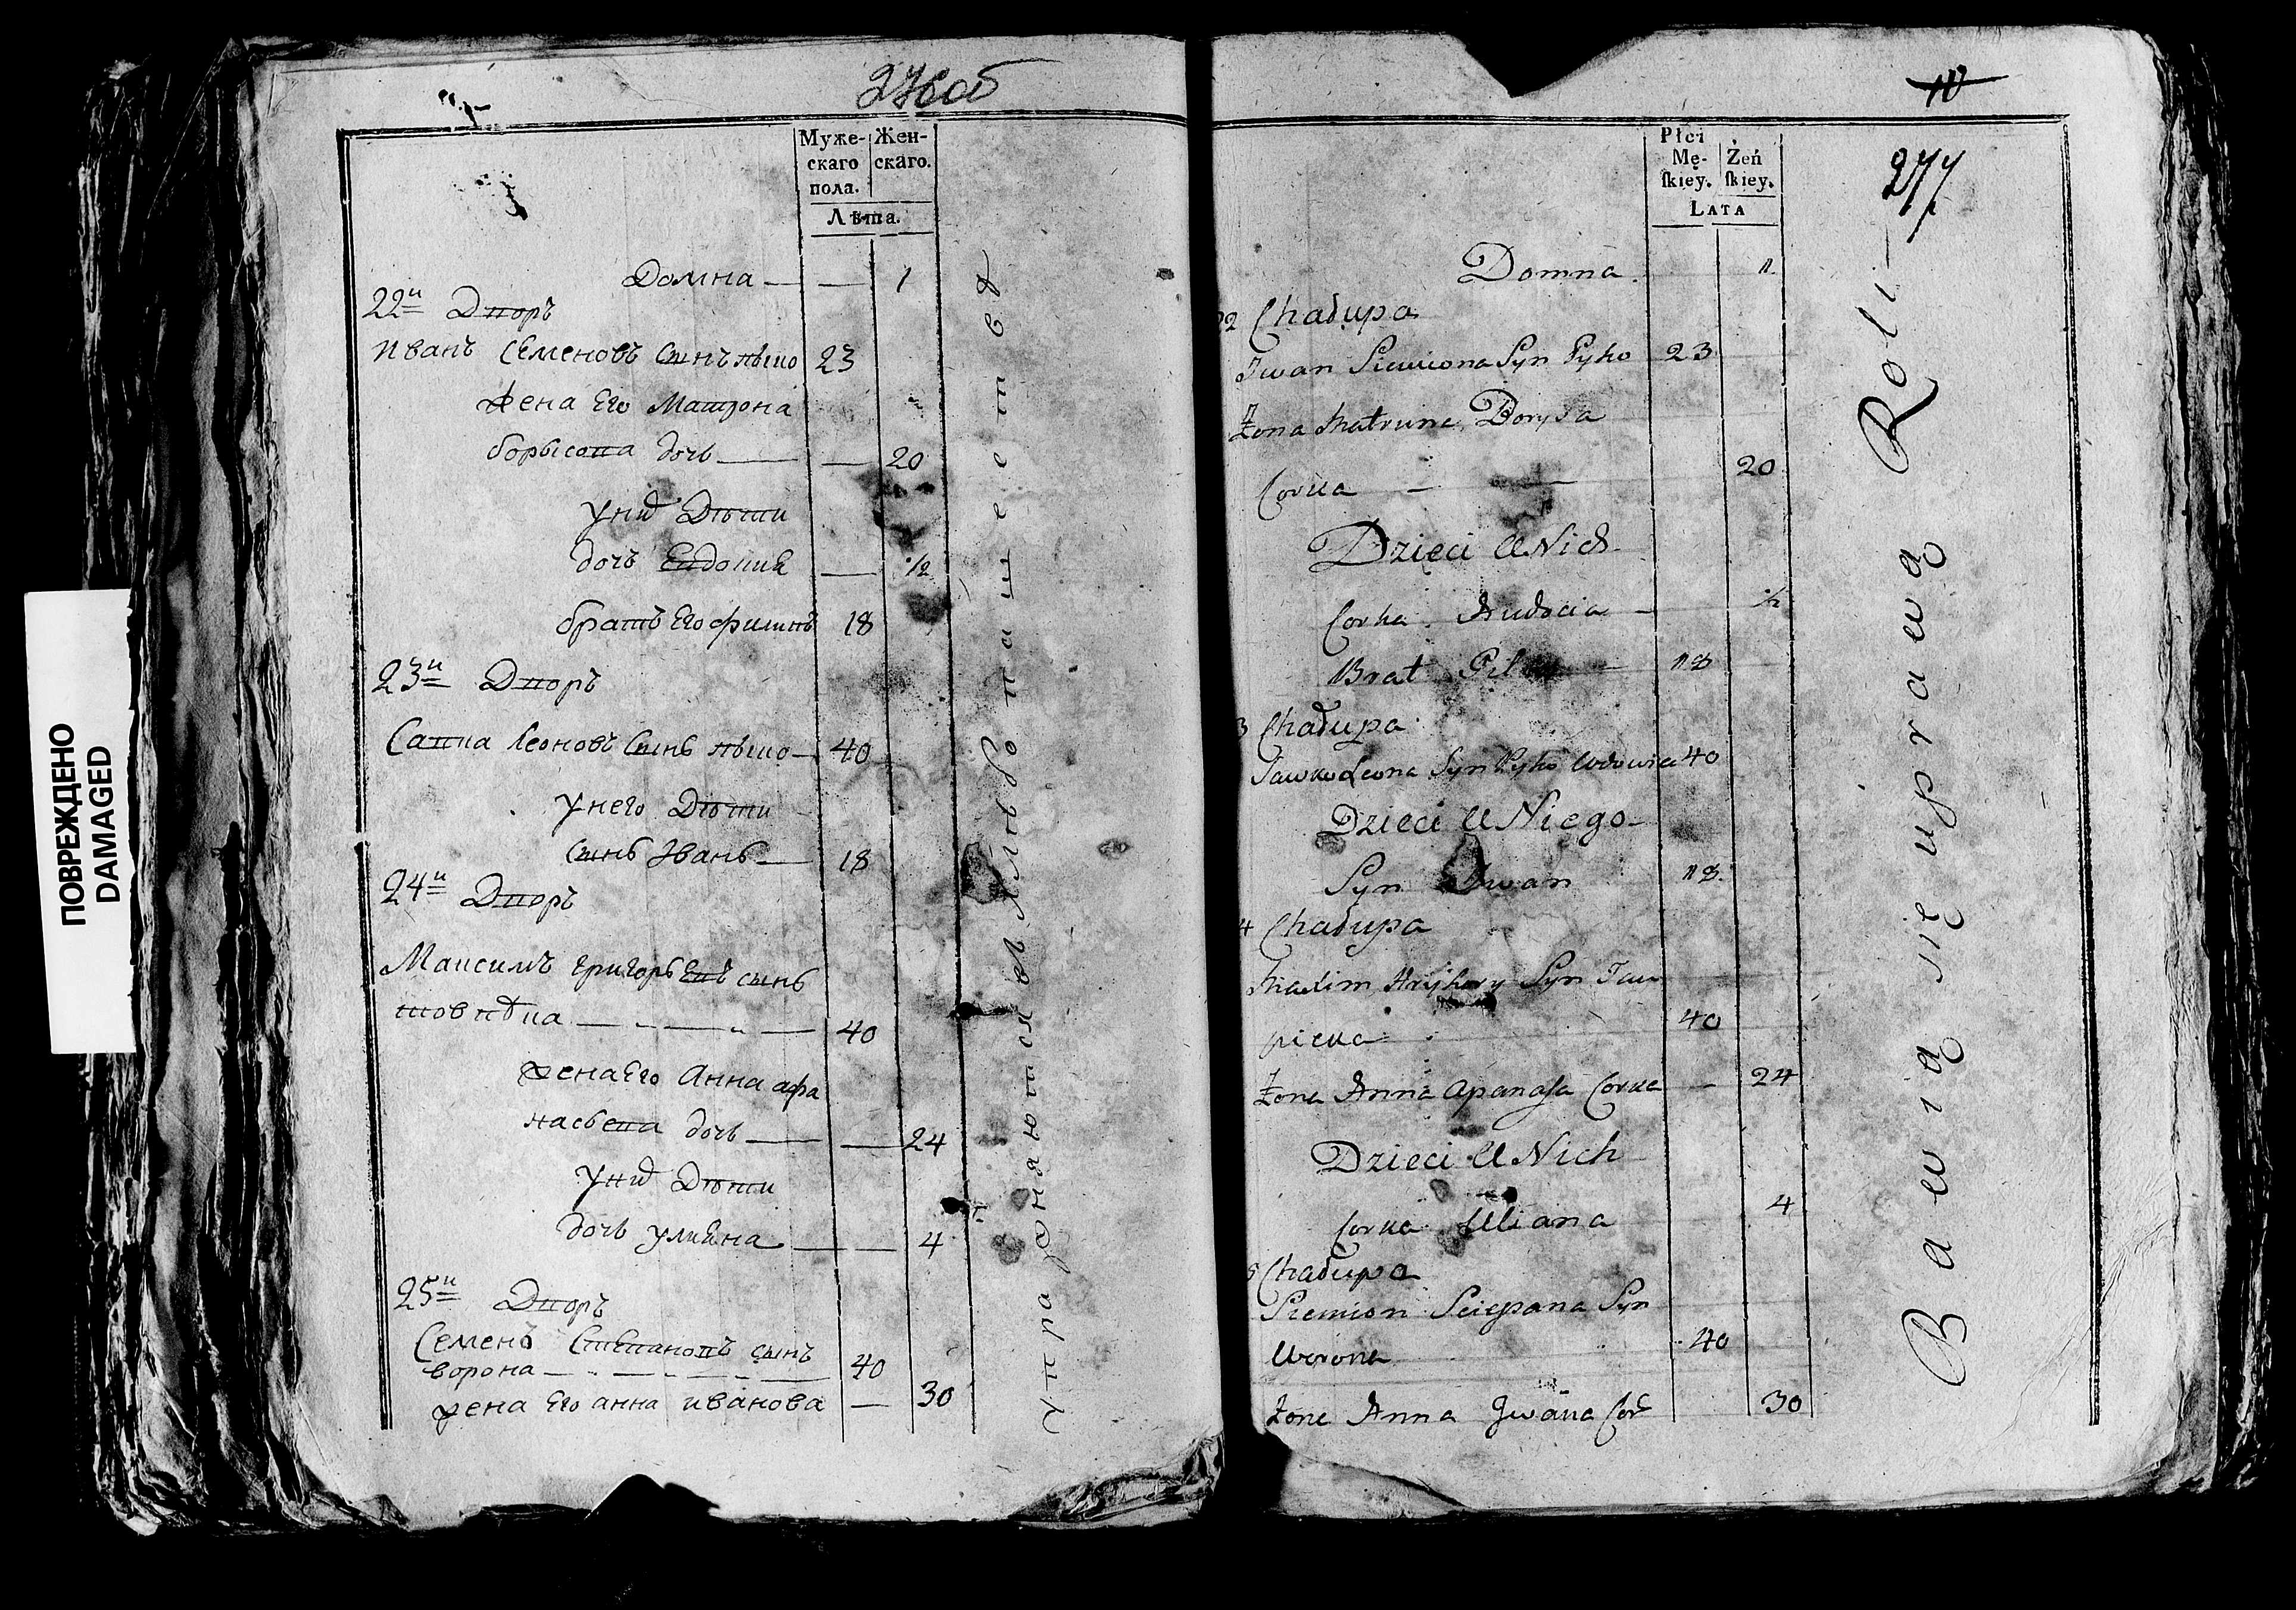 ПОВРЕЖДЕНО
DAMAGED
276 об
Муже-
скаго
пола.
Жен-
скаго.
Лѣта.
Домна — — 1
22й Дворъ
Иванъ Семеновъ сынъ 23
жена Его Матрона
борысова дочь — — 20
у них Дѣти
дочь Евдокия — 1/2
братъ Его филипъ 18
23й Дворъ
Савка Леоновъ сынъ — 40
у него Дѣти
сынъ Иванъ — 18
24й Дворъ
Максимъ григорьевъ сынъ
товпѣка — 40
жена Его Анна афа
насьева дочь — — 24
у них Дѣти
дочь улияна — — 4
25й Дворъ
Семенъ Степановъ сынъ
ворона — 40
жена Его анна иванова — 30
упражняются въ хлѣбопашествѣ
10
277
Płci
Mę-
skiey.
Żeń
skiey.
LATA
Domna 1
22 Chałupa
Iwan Siemiona Syn Pyho 23
Żona Matruna Borysa
Corka — 20
Dzieci U Nich
Corka Audocia — 1/2
Brat — 18
3 Chałupa
Sawka Leona Syn Pyho Wdowiec 40
Dzieci U Niego
Syn Iwan 18
4 Chałupa
Maxim Hryhory Syn Taw
pieka 40
Żona Anna Apanasa Corka — 24
Dzieci U Nich
Corka Uliana 4
5 Chałupa
Siemion Sciepana Syn
Worona 40
Żona Anna Iwana Cor 30
Bawią się uprawą Roli